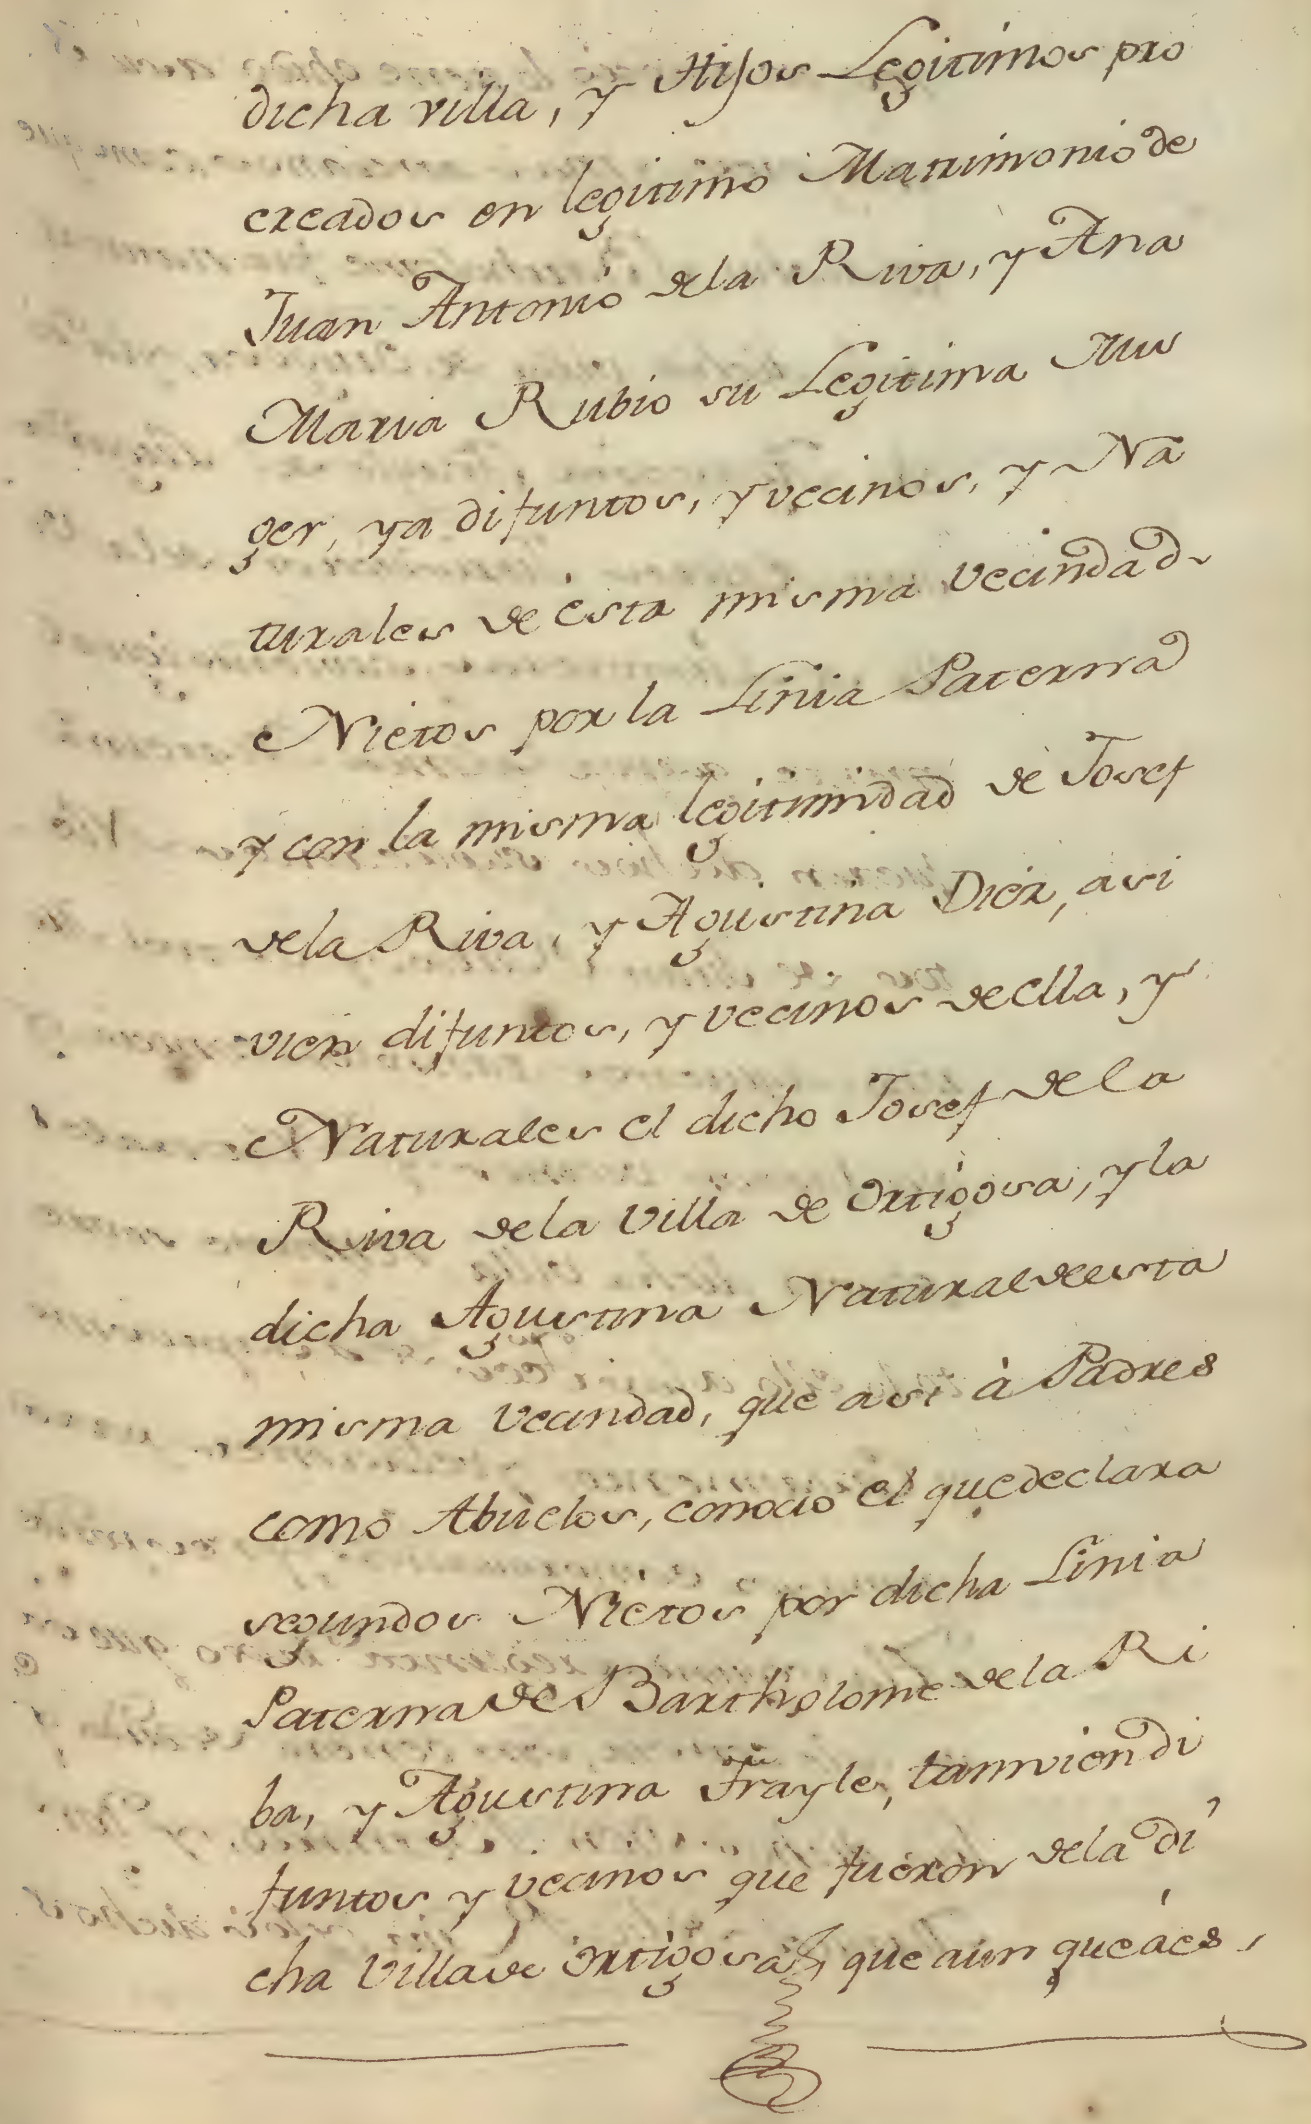 dicha villa, y Hijos Legitimos pro
creados en legitimo Matrimonio de
Juan Antonio dela Riva, y Ana
Maria Rubio su Legitima Mu
ger, ya difuntos, y vecinos, y Na
turales de ésta misma vecindad.
Nietos por la Linia Paterna
y con la misma legitimidad de Josef
dela Riva, y Agustina Diez, asi
vien difuntos, y vecinos de ella, y
Naturales el dicho Josef de la
Riva dela villa de Ortigosa, y la
dicha Agustina Natural de esta
misma vecindad, que asi à Padres
como Abuelos, conocio el que declara
segundos Nietos por dicha Linia
Paterna de Bartholome de la Ri
ba, y Agustina Frayle, tamvien di
funtos y vecinos que fueron dela di
cha Villa de Ortigosa, que aun que áes,